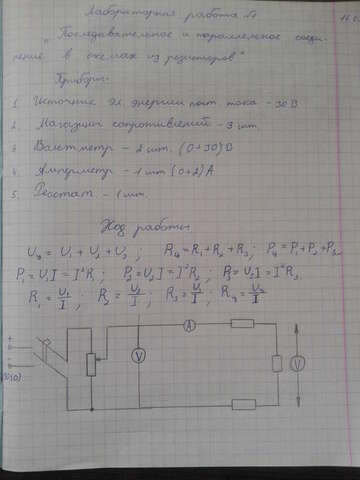 Лабораторная работа №
„Последавательное и параллельное соеди-
нение в схемах из резисторов"
Приборы:
1. Источник эл. энергии пост. тока - 30 В
2. Магазин сопротивлений - 3 шт.
3. Вольтметр - 2 шт. (0÷30) В
4. Амперметр - 1 шт (0÷2) А
5. Реостат - 1 шт.
Ход работы
U = U₁ + U₂ + U₃ ; R = R₁ + R₂ + R₃ ; P = P₁ + P₂ + P₃
P₁ = U₁I = I²R₁ ; P₂ = U₂I = I²R₂ ; P₃ = U₃I = I²R₃
R₁ = U₁/I ; R₂ = U₂/I ; R₃ = U₃/I ; R = U/I
A
+
-
V
V